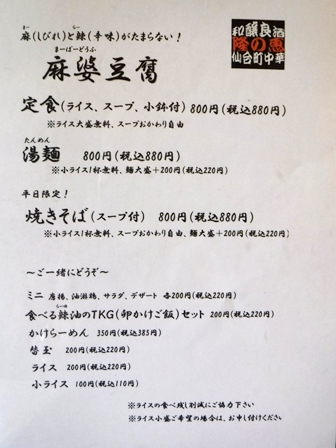 麻(しびれ)と辣(辛味)がたまらない！
まー
らー
和醸良酒
隆の恵
仙台町中華
まーぼーどうふ
麻婆豆腐
定食(ライス、スープ、小鉢付) 800円(税込880円)
※ライス大盛無料、スープおかわり自由
たんめん
湯麺 800円(税込880円)
※小ライス1杯無料、麺大盛+200円(税込220円)
平日限定！
焼きそば(スープ付) 800円(税込880円)
※小ライス1杯無料、スープおかわり自由、麺大盛+200円(税込220円)
〜ご一緒にどうぞ〜
ミニ 唐揚、油淋鶏、サラダ、デザート 各200円(税込220円)
食べる辣油のTKG(卵かけご飯)セット 200円(税込220円)
かけらーめん 350円(税込385円)
替玉 200円(税込220円)
ライス 200円(税込220円)
小ライス 100円(税込110円)
※ライスの食べ残し削減にご協力下さい
※ライス小盛ご希望の場合は、お申し付けください